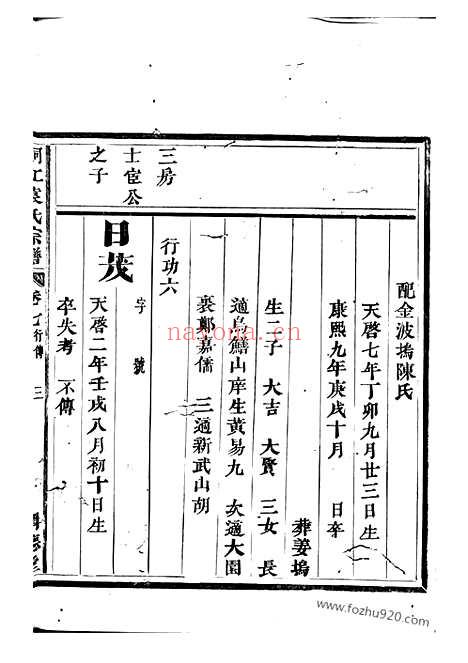 配金波塢陳氏
天啓七年丁卯九月廿三日生
康熙九年庚戌十月 日卒
葬姜塢
生二子 大吉 大賢 三女 長
適烏鷰山庠生黃易九 次適大園
裘鄭嘉儒 三適新武山胡
行功六
日茂 字 號
天啓二年壬戌八月初十日生
卒失考 不傳
三房
士宦公
之子
江袁氏宗譜 卷 行傳 三
nayona.cn
www.fozhu920.com